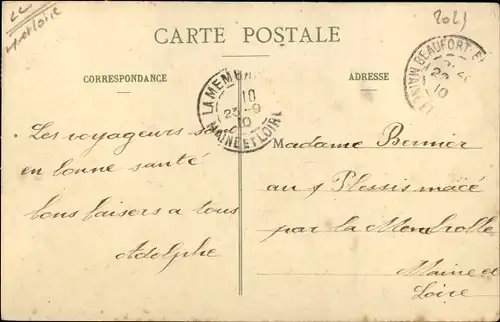 2021
CARTE POSTALE
CORRESPONDANCE
ADRESSE
LA MEMB
10
23-9
10
MAINE ET LOIRE
BEAUFORT
10
Les voyageurs sont
en bonne santé
bons baisers a tous
Adolphe
Madame Bernier
au Plessis macé
par la Membrolle
Maine et
Loire